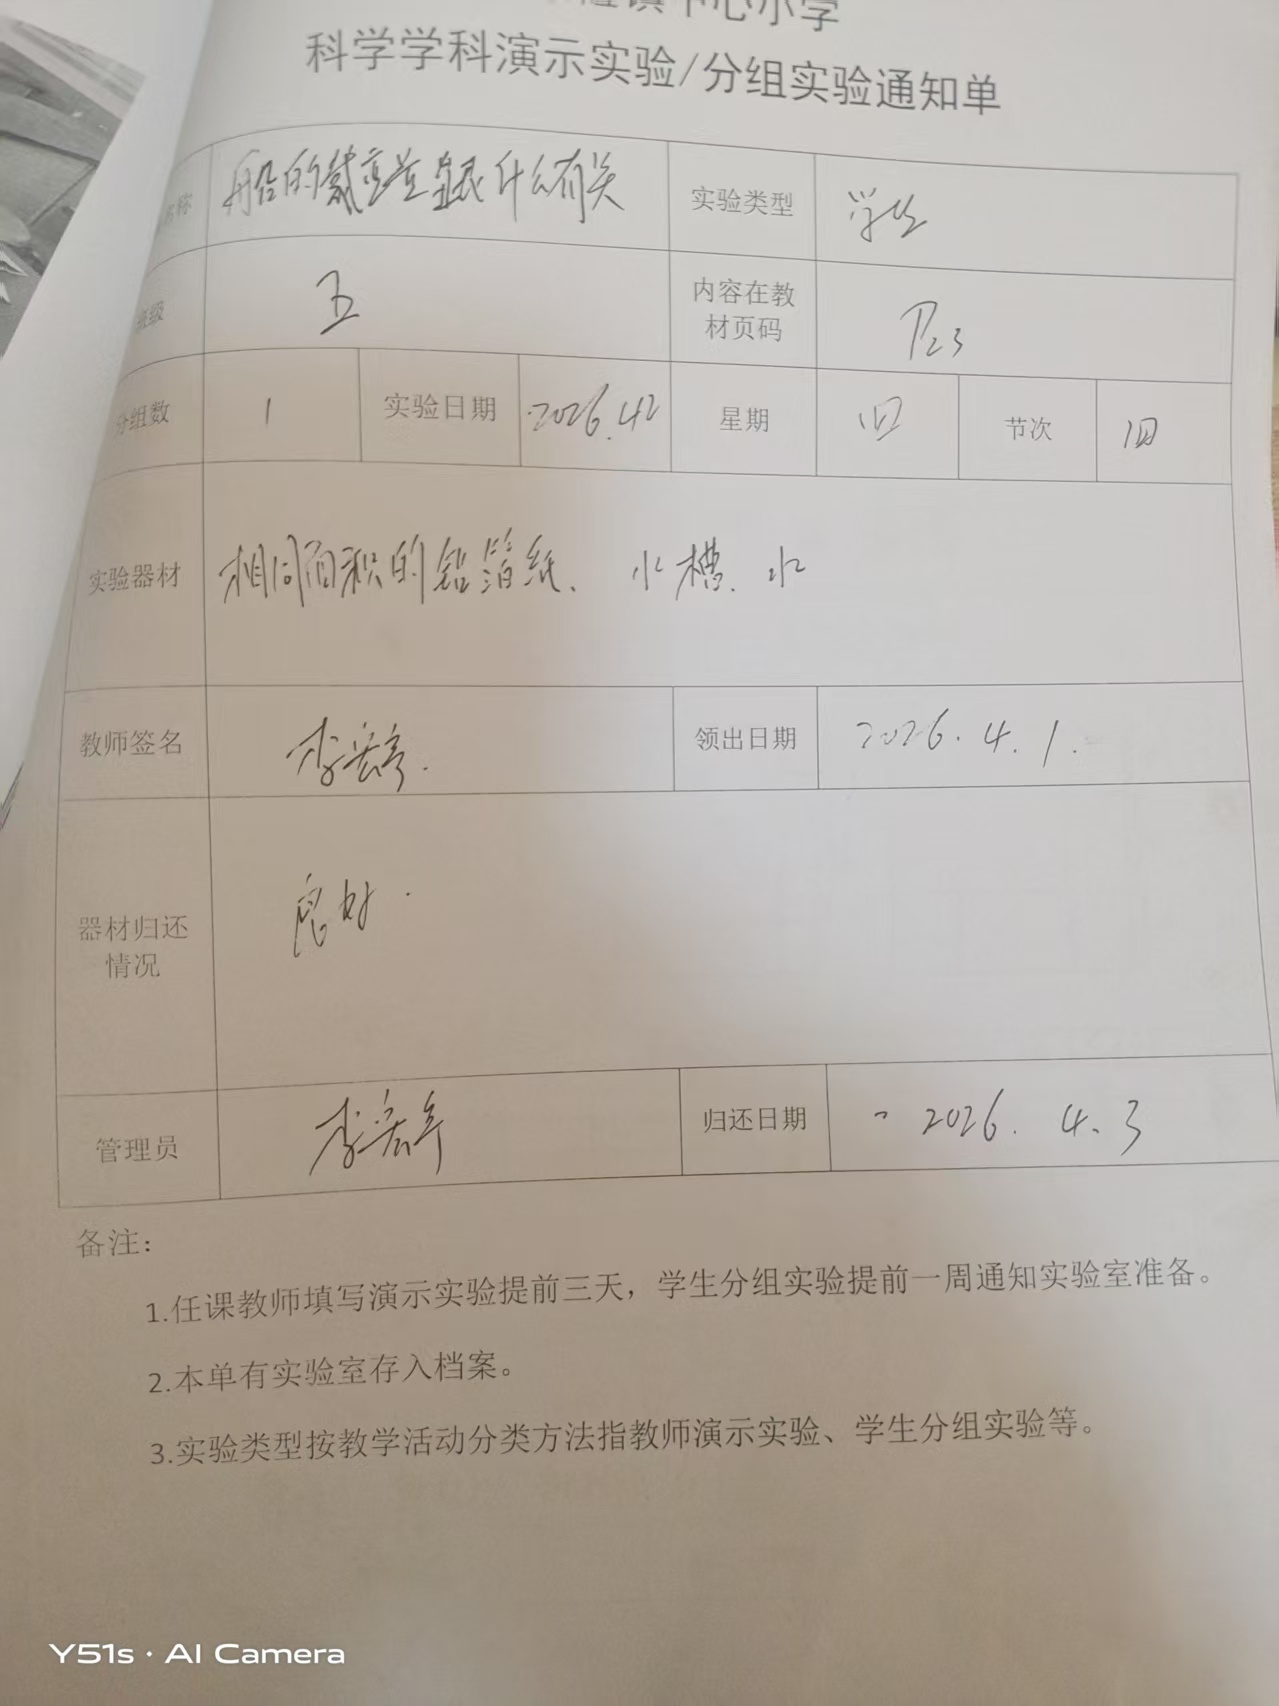 镇中心小学
科学学科演示实验/分组实验通知单
名称 船的载重量跟什么有关 实验类型 学生
班级 五 内容在教材页码 P23
分组数 1 实验日期 2026.4.2 星期 四 节次 四
实验器材 相同面积的铝箔纸、水槽、水
教师签名 李 领出日期 2026.4.1.
器材归还情况 良好.
管理员 李 归还日期 2026.4.3
备注:
1.任课教师填写演示实验提前三天，学生分组实验提前一周通知实验室准备。
2.本单有实验室存入档案。
3.实验类型按教学活动分类方法指教师演示实验、学生分组实验等。
Y51s · AI Camera